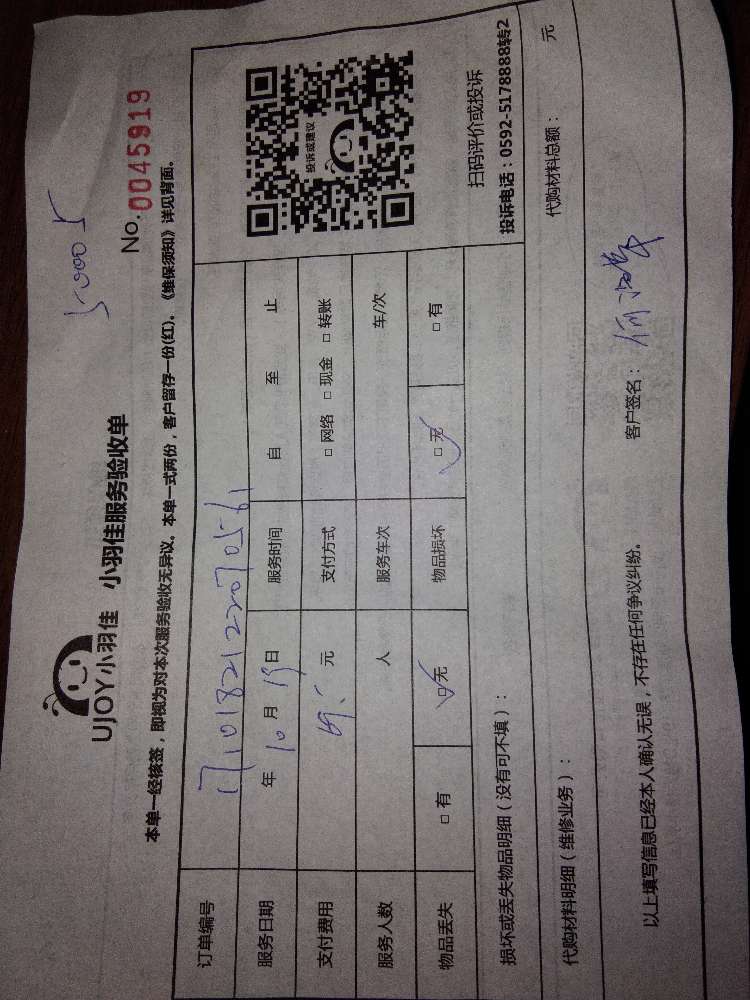 50005
UJOY小羽佳 小羽佳服务验收单
No.0045919
本单一经核签，即视为对本次服务验收无异议。本单一式两份，客户留存一份(红)。《维保须知》详见背面。
订单编号 1710182122070561
服务日期 年 10 月 19 日 服务时间 自 至 止
支付费用 元 支付方式 □ 网络 □ 现金 □ 转账
服务人数 人 服务车次 车/次
物品丢失 □ 有 □ 无 物品损坏 □ 无 □ 有
投诉或建议
扫码评价或投诉
投诉电话：0592-5178888转2
损坏或丢失物品明细（没有可不填）：
代购材料明细（维修业务）： 代购材料总额： 元
以上填写信息已经本人确认无误，不存在任何争议纠纷。 客户签名：